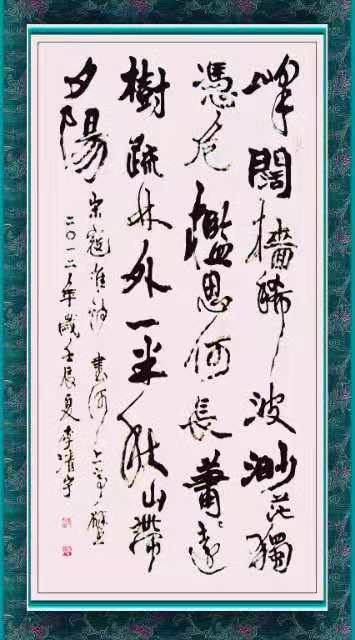 岸闊檣稀波渺茫獨
憑危檻思何長蕭々遠
樹疏林外一半秋山帶
夕陽
宋寇準詩書河上亭壁
二〇一二年歲壬辰夏李清宇